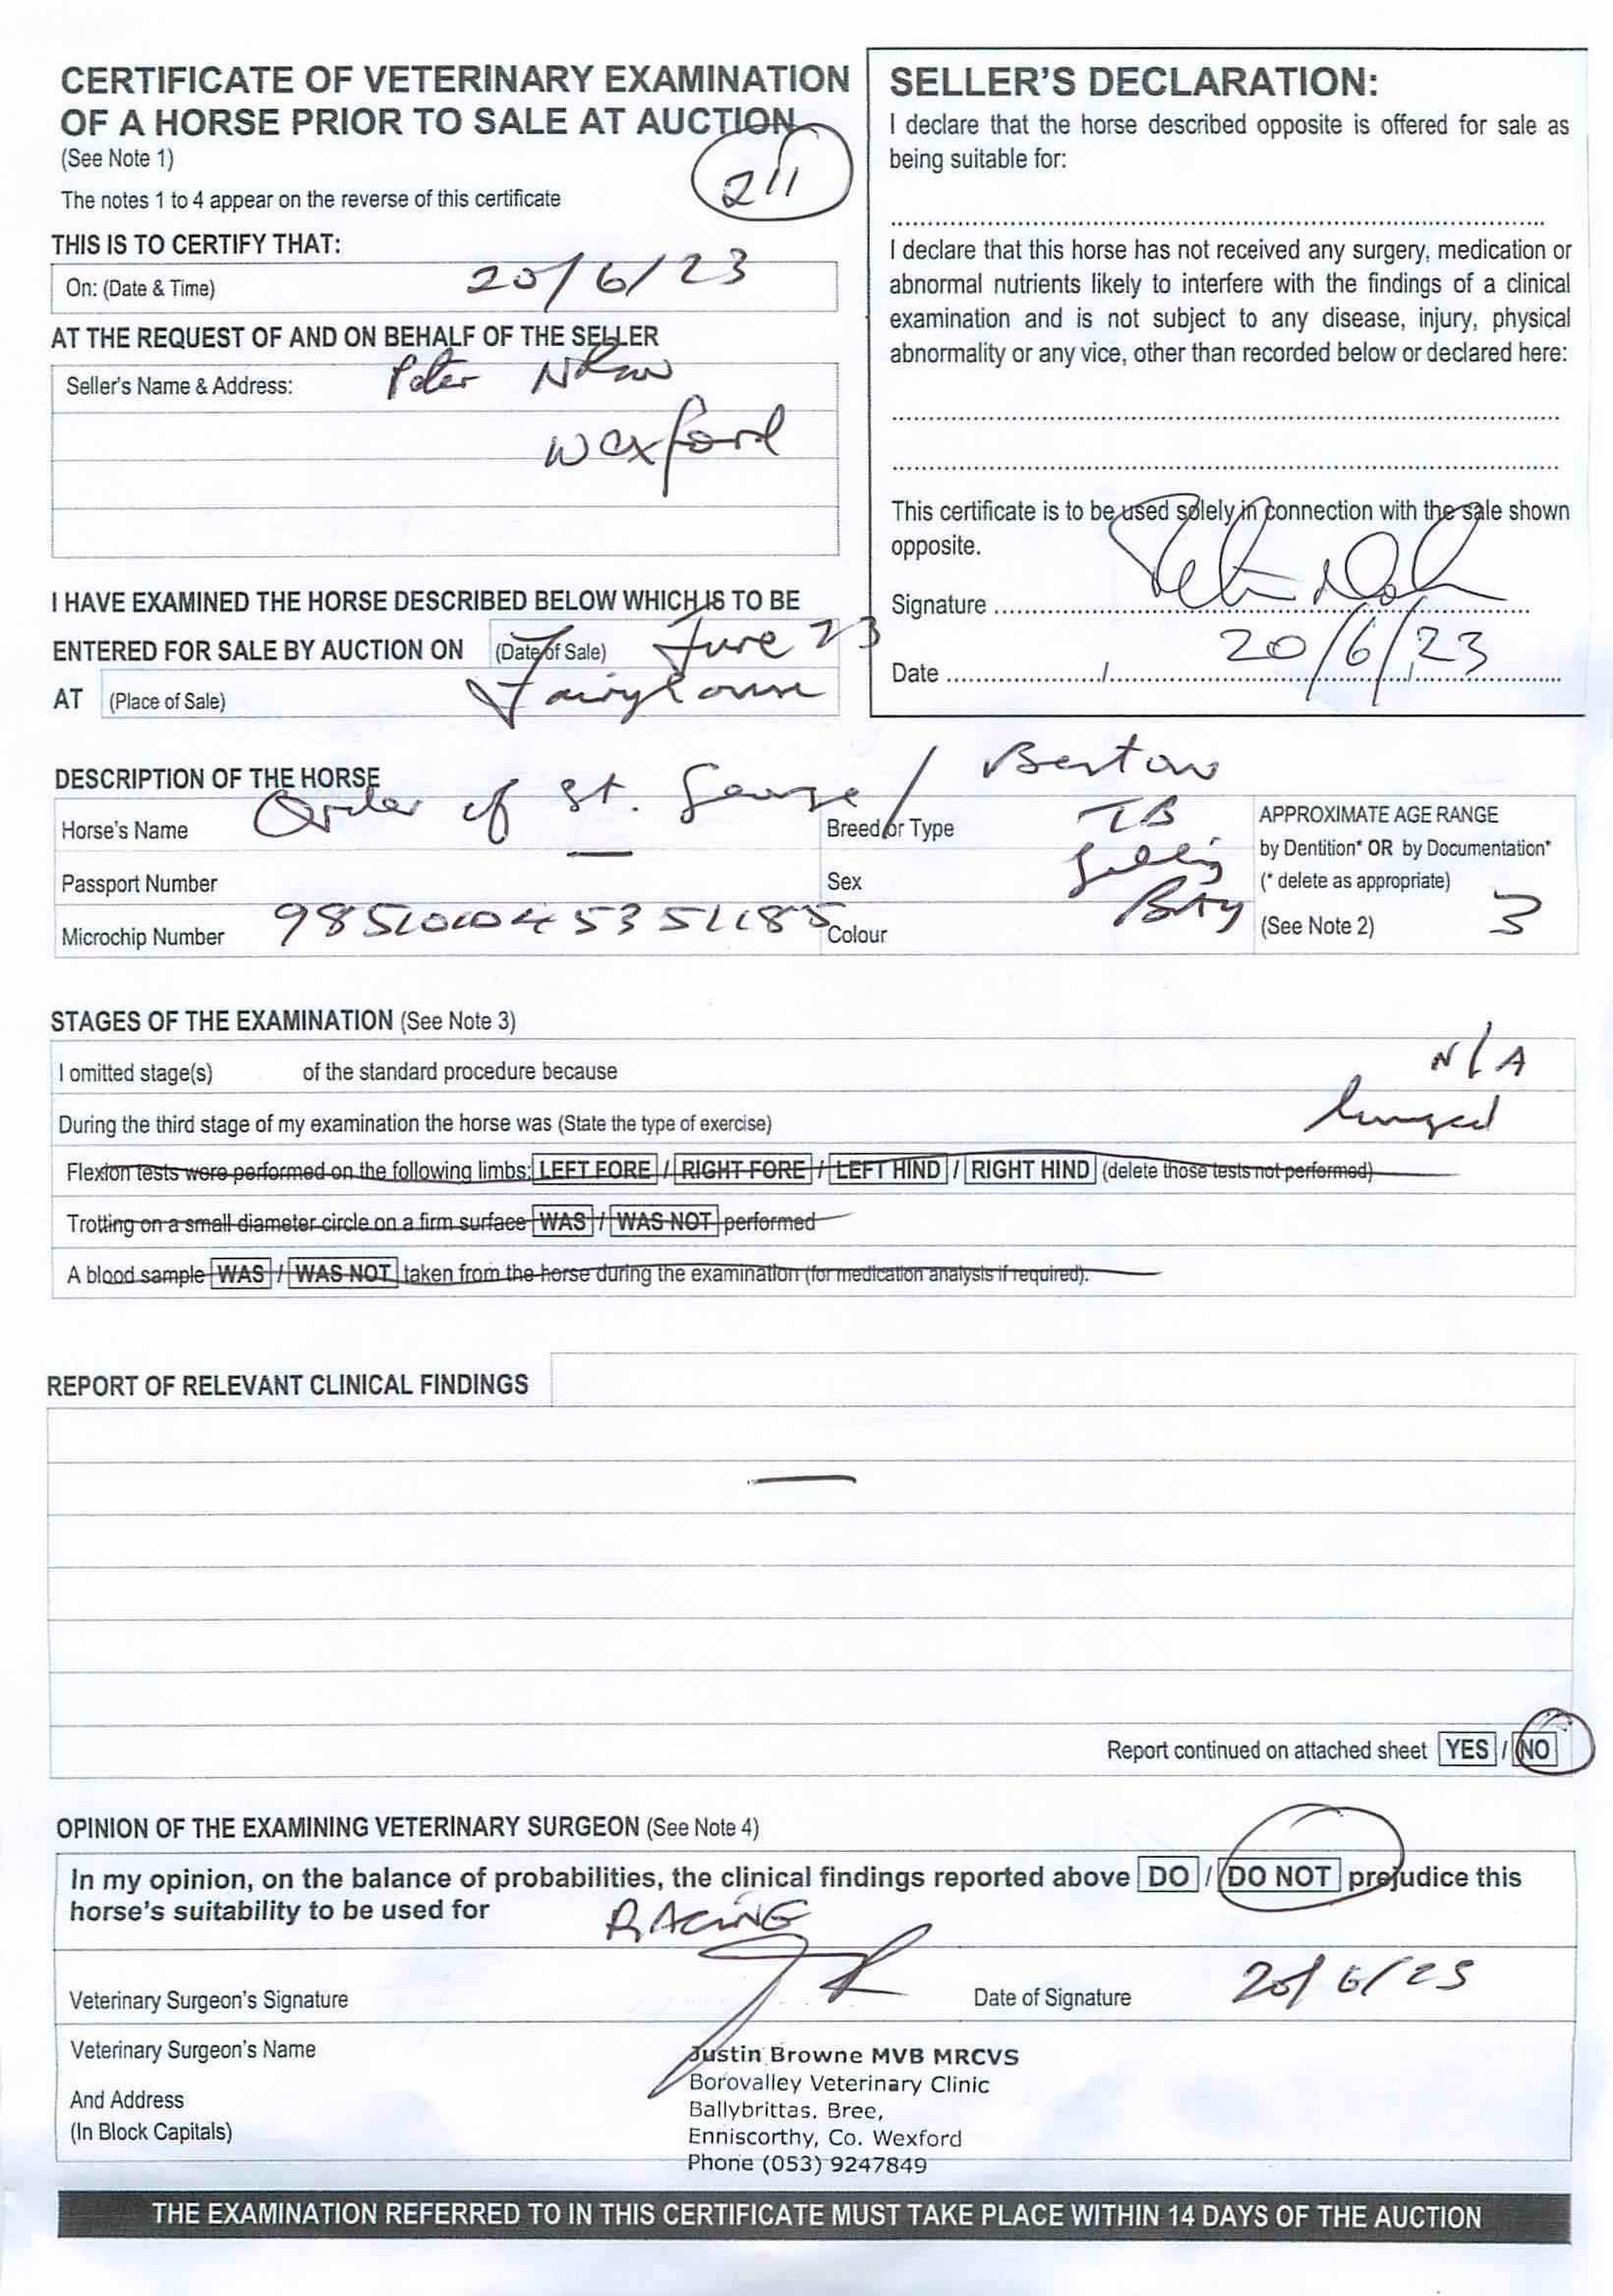 CERTIFICATE OF VETERINARY EXAMINATION
OF A HORSE PRIOR TO SALE AT AUCTION
(See Note 1)
211
The notes 1 to 4 appear on the reverse of this certificate
THIS IS TO CERTIFY THAT:
On: (Date & Time) 20/6/23
AT THE REQUEST OF AND ON BEHALF OF THE SELLER
Seller's Name & Address: Peter
Wexford
I HAVE EXAMINED THE HORSE DESCRIBED BELOW WHICH IS TO BE
ENTERED FOR SALE BY AUCTION ON (Date of Sale) June 23
AT (Place of Sale) Fairyhouse
SELLER'S DECLARATION:
I declare that the horse described opposite is offered for sale as
being suitable for:
I declare that this horse has not received any surgery, medication or
abnormal nutrients likely to interfere with the findings of a clinical
examination and is not subject to any disease, injury, physical
abnormality or any vice, other than recorded below or declared here:
This certificate is to be used solely in connection with the sale shown
opposite.
Signature
Date 20/6/23
DESCRIPTION OF THE HORSE
Horse's Name Order of St. George /
Breed or Type TB
Passport Number —
Sex
Microchip Number
Colour Bay
APPROXIMATE AGE RANGE
by Dentition* OR by Documentation*
(* delete as appropriate)
(See Note 2) 3
STAGES OF THE EXAMINATION (See Note 3)
I omitted stage(s) of the standard procedure because N/A
During the third stage of my examination the horse was (State the type of exercise) lunged
Flexion tests were performed on the following limbs: LEFT FORE / RIGHT FORE / LEFT HIND / RIGHT HIND (delete those tests not performed)
Trotting on a small diameter circle on a firm surface WAS / WAS NOT performed
A blood sample WAS / WAS NOT taken from the horse during the examination (for medication analysis if required).
REPORT OF RELEVANT CLINICAL FINDINGS
—
Report continued on attached sheet YES / NO
OPINION OF THE EXAMINING VETERINARY SURGEON (See Note 4)
In my opinion, on the balance of probabilities, the clinical findings reported above DO / DO NOT prejudice this
horse's suitability to be used for RACING
Veterinary Surgeon's Signature
Date of Signature 20/6/23
Veterinary Surgeon's Name
And Address
(In Block Capitals)
Justin Browne MVB MRCVS
Borovalley Veterinary Clinic
Ballybrittas, Bree,
Enniscorthy, Co. Wexford
Phone (053) 9247849
THE EXAMINATION REFERRED TO IN THIS CERTIFICATE MUST TAKE PLACE WITHIN 14 DAYS OF THE AUCTION